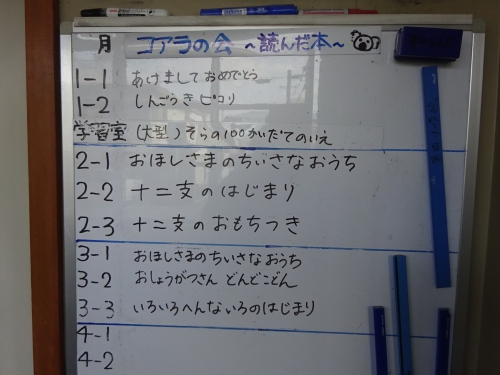 月 コアラの会 ～読んだ本～
1-1 あけましておめでとう
1-2 しんごうきピコリ
学習室 (大型) そらの100かいだてのいえ
2-1 おほしさまのちいさなおうち
2-2 十二支のはじまり
2-3 十二支のおもちつき
3-1 おほしさまのちいさなおうち
3-2 おしょうがつさん どんどこどん
3-3 いろいろへんないろのはじまり
4-1
4-2